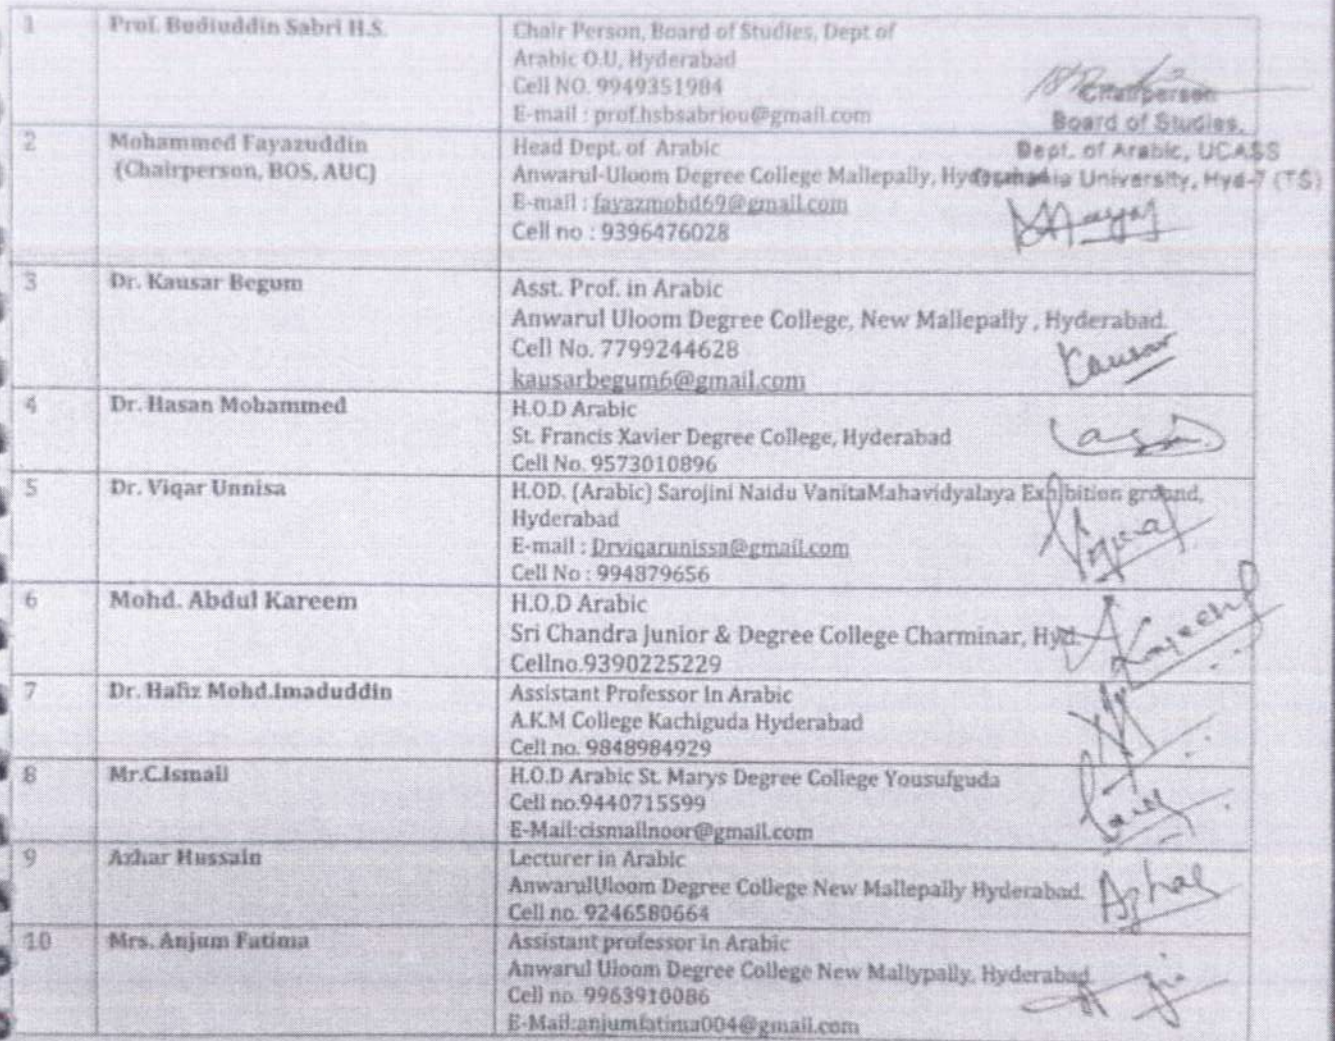 1 Prof. Bediuddin Sabri H.S. Chair Person, Board of Studies, Dept of
Arabic O.U, Hyderabad
Cell NO. 9949351984
E-mail : prof.hsbsabriou@gmail.com
Chairperson
Board of Studies,
Dept. of Arabic, UCASS
Osmania University, Hyd-7 (TS)
2 Mohammed Fayazuddin Head Dept. of Arabic
(Chairperson, BOS, AUC) Anwarul-Uloom Degree College Mallepally,
E-mail : fayazmohd69@gmail.com
Cell no : 9396476028
3 Dr. Kausar Begum Asst. Prof. in Arabic
Anwarul Uloom Degree College, New Mallepally , Hyderabad.
Cell No. 7799244628
Kausar
kausarbegum6@gmail.com
4 Dr. Hasan Mohammed H.O.D Arabic
St. Francis Xavier Degree College, Hyderabad
Cell No. 9573010896
5 Dr. Viqar Unnisa H.OD. (Arabic) Sarojini Naidu VanitaMahavidyalaya Exhibition ground,
Hyderabad
E-mail : Drviqarunissa@gmail.com
Cell No : 994879656
6 Mohd. Abdul Kareem H.O.D Arabic
Sri Chandra Junior & Degree College Charminar, Hyd.
Cellno.9390225229
AKareem
7 Dr. Hafiz Mohd.Imaduddin Assistant Professor In Arabic
A.K.M College Kachiguda Hyderabad
Cell no. 9848984929
8 Mr.C.Ismail H.O.D Arabic St. Marys Degree College Yousufguda
Cell no.9440715599
E-Mail:cismailnoor@gmail.com
9 Azhar Hussain Lecturer in Arabic
AnwarulUloom Degree College New Mallepally Hyderabad.
Azhar
Cell no. 9246580664
10 Mrs. Anjum Fatima Assistant professor in Arabic
Anwarul Uloom Degree College New Mallypally, Hyderabad
Cell no. 9963910086
E-Mail:anjumfatima004@gmail.com